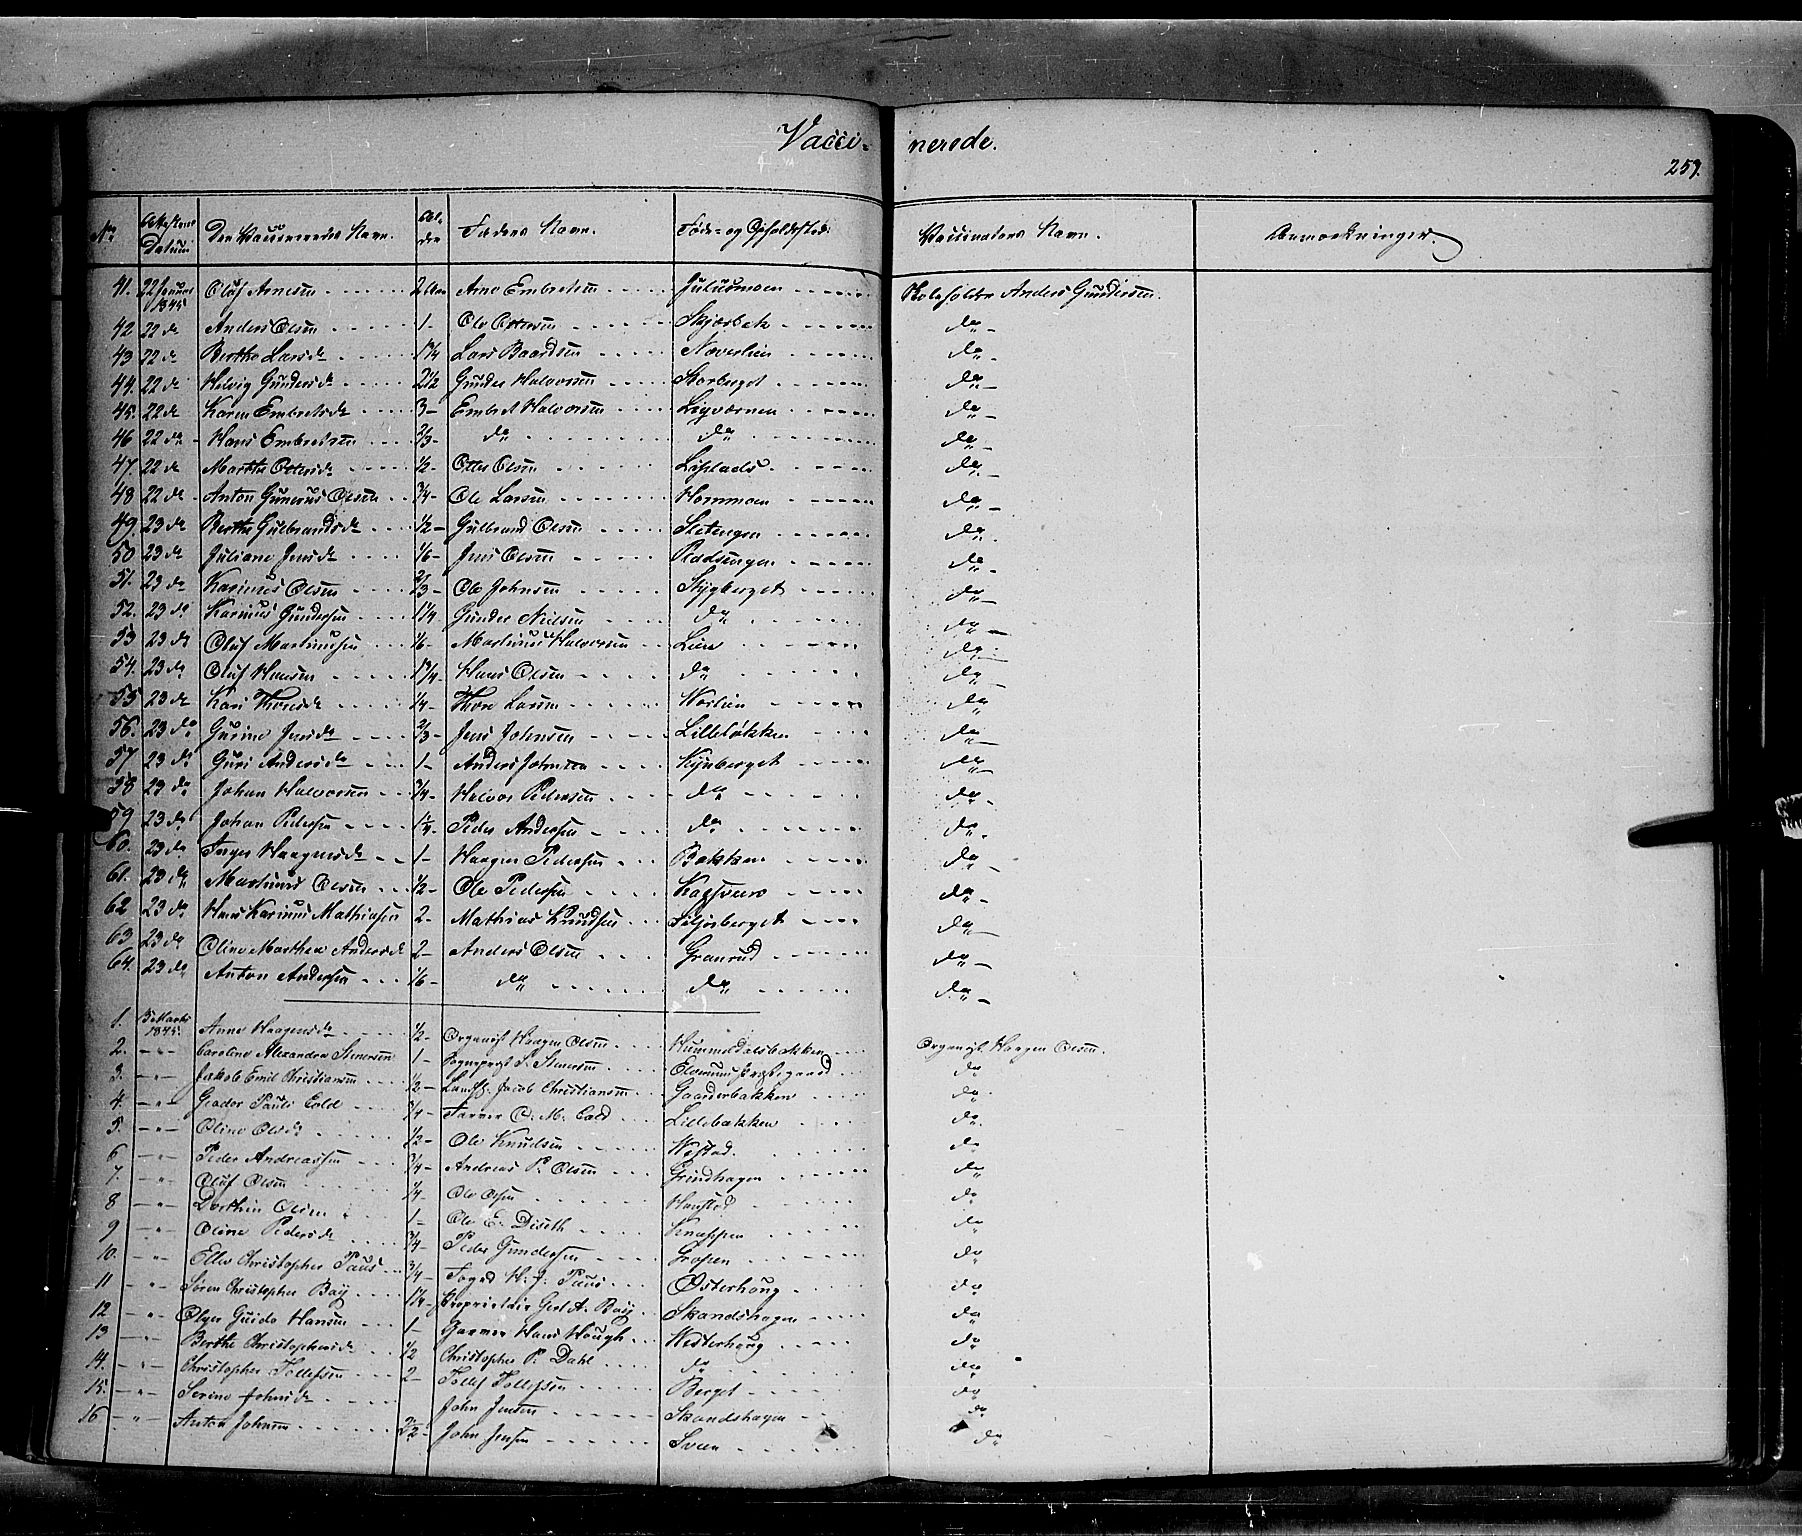 Vacci- nerede.
259.
No Attestens Datum Den Vaccineredes Navn. Alder Faders Navn. Føde- og Opholdssted. Vaccinatørs Navn. Anmærkninger.
41. 22 Januar 1845 Oluf Arnesen 2 Arne Embretsen Juliusmoen Skoleholder Anders Gundersen.
42. 22 do Anders Olsen 1 - Ole Ottersen Skjærbek do -
43. 22 do Berthe Larsd. 1¼ Lars Baardsen Næverlien do -
44. 22 do Helvig Gundersd. 2½ Gunder Halvorsen Storberget do -
45. 22 do Karen Embretsd. 3 - Embret Halvorsen do -
46 22 do Hans Embretsen 2/3 - do do do -
47. 22 do Marthe Ottersd. ½ - Otter Olsen do -
48 22 do Anton Gunerius Olsen ¾ - Ole Larsen Hommoen do -
49. 23 do Berthe Gulbrandsd. ½ - Gulbrand Olsen do -
50 23 do Juliane Jensd. 1/6 - Jens Olsen do -
51. 23 do Karinus Olsen 2/3 - Ole Johnsen Stygberget do -
52. 23 do Karinus Gundersen 1¼ Gunder Nielsen do do -
53 23 do Oluf Martinusen 1/6 - Martinus Halvorsen Lien do -
54. 23 do Oluf Hansen 1¼ Hans Olsen do do -
55 23 do Kari Thoresd. ¼ - Thore Larsen Norlien do -
56. 23 do Gurine Jensd. 2/3 - Jens Johnsen Lillebækken do -
57 23 do Guri Andersd. 1 - Anders Johnsen Kynberget do -
58 23 do Johan Halvorsen ¾ - Halvor Pedersen do do -
59 23 do Johan Pedersen 1¼ Peder Andersen do do -
60. 23 do Inger Haagensd. 1 - Haagen Pedersen Bakken do -
61. 23 do Martinus Olsen ½ - Ole Pedersen do -
62 23 do Hans Karinus Mathiasen 2 - Mathias Knudsen Siljeberget do -
63 23 do Oline Marthea Andersd. 2 - Anders Olsen Granrud do -
64. 23 do Anton Andersen 1/6 - do do do -
1. 5 Marts 1845. Anne Haagensd. ½ - Organist Haagen Olsen Hummeldalsbakken Organist Haagen Olsen.
2. - " - Caroline Alexandra Stenersen 1 - Sogneprest S. Stenersen Elverums Prestegaard do
3. - " - Jakob Emil Christiansen ½ - Jacob Christiansen Gaarderbakken do
4. - " - Peder Pauli Cold ¾ - Farver O. M. Cold Lillebakken do
5. - " - Oline Olsd. ½ - Ole Knudsen Westad. do
6 - " - Peder Andreassen ¾ - Andreas P. Olsen Grindhagen do
7. - " - Oluf Olsen ¼ - Ole Olsen Hanstad do
8 - " - Dorthea Olsen 1 - Ole E. Diseth Knappen do
9 - " - Oline Pedersd. ¾ - Peder Gundersen Gropen do
10. - " - Christopher Paus ¾ - Foged H. J. Paus Østerhoug do
11 - " - Søren Christopher Bay 1¼ - Proprietær Bay Skandshagen do
12 - " - Guido Hansen 1 - Garver Hans Hough Westerhoug do
13 - " - Berthe Christophersd. ½ Christopher P. Dahl do do
14. - " - Christopher Tollefsen 2 - Tollef Tollefsen Berget do
15. - " - Serine Johnsd. John Jensen Skandshagen do
16 - " - Anton Johnsen 2½ - John Jensen Sveen do